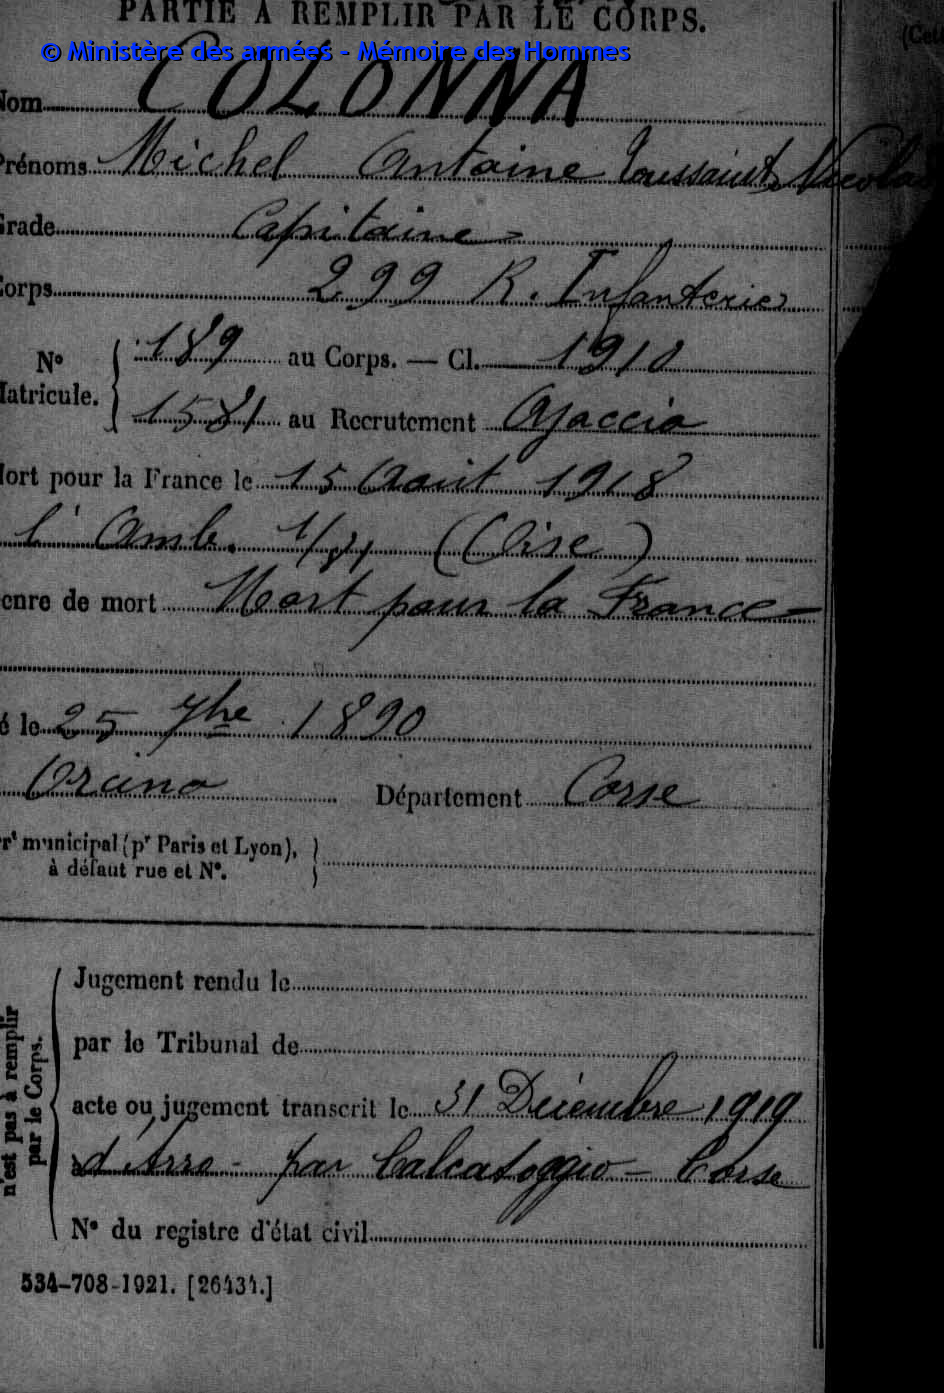 PARTIE À REMPLIR PAR LE CORPS.
© Ministère des armées - Mémoire des Hommes
Nom COLONNA
Prénoms Michel Antoine Toussaint Nicolas
Grade Capitaine
Corps 299 R. Infanterie
N° Matricule. 189 au Corps. — Cl. 1910
1581 au Recrutement Ajaccio
Mort pour la France le 15 Août 1918
l'Amb. (Oise)
enre de mort Mort pour la France
é le 25 7bre 1890
Département Corse
rt municipal (pr Paris et Lyon),
à défaut rue et N°.
n'est pas à remplir
par le Corps.
Jugement rendu le
par le Tribunal de
acte ou jugement transcrit le 31 Décembre 1919
à d'Arro - par Calcatoggio - Corse
N° du registre d'état civil
534-708-1921. [26434.]